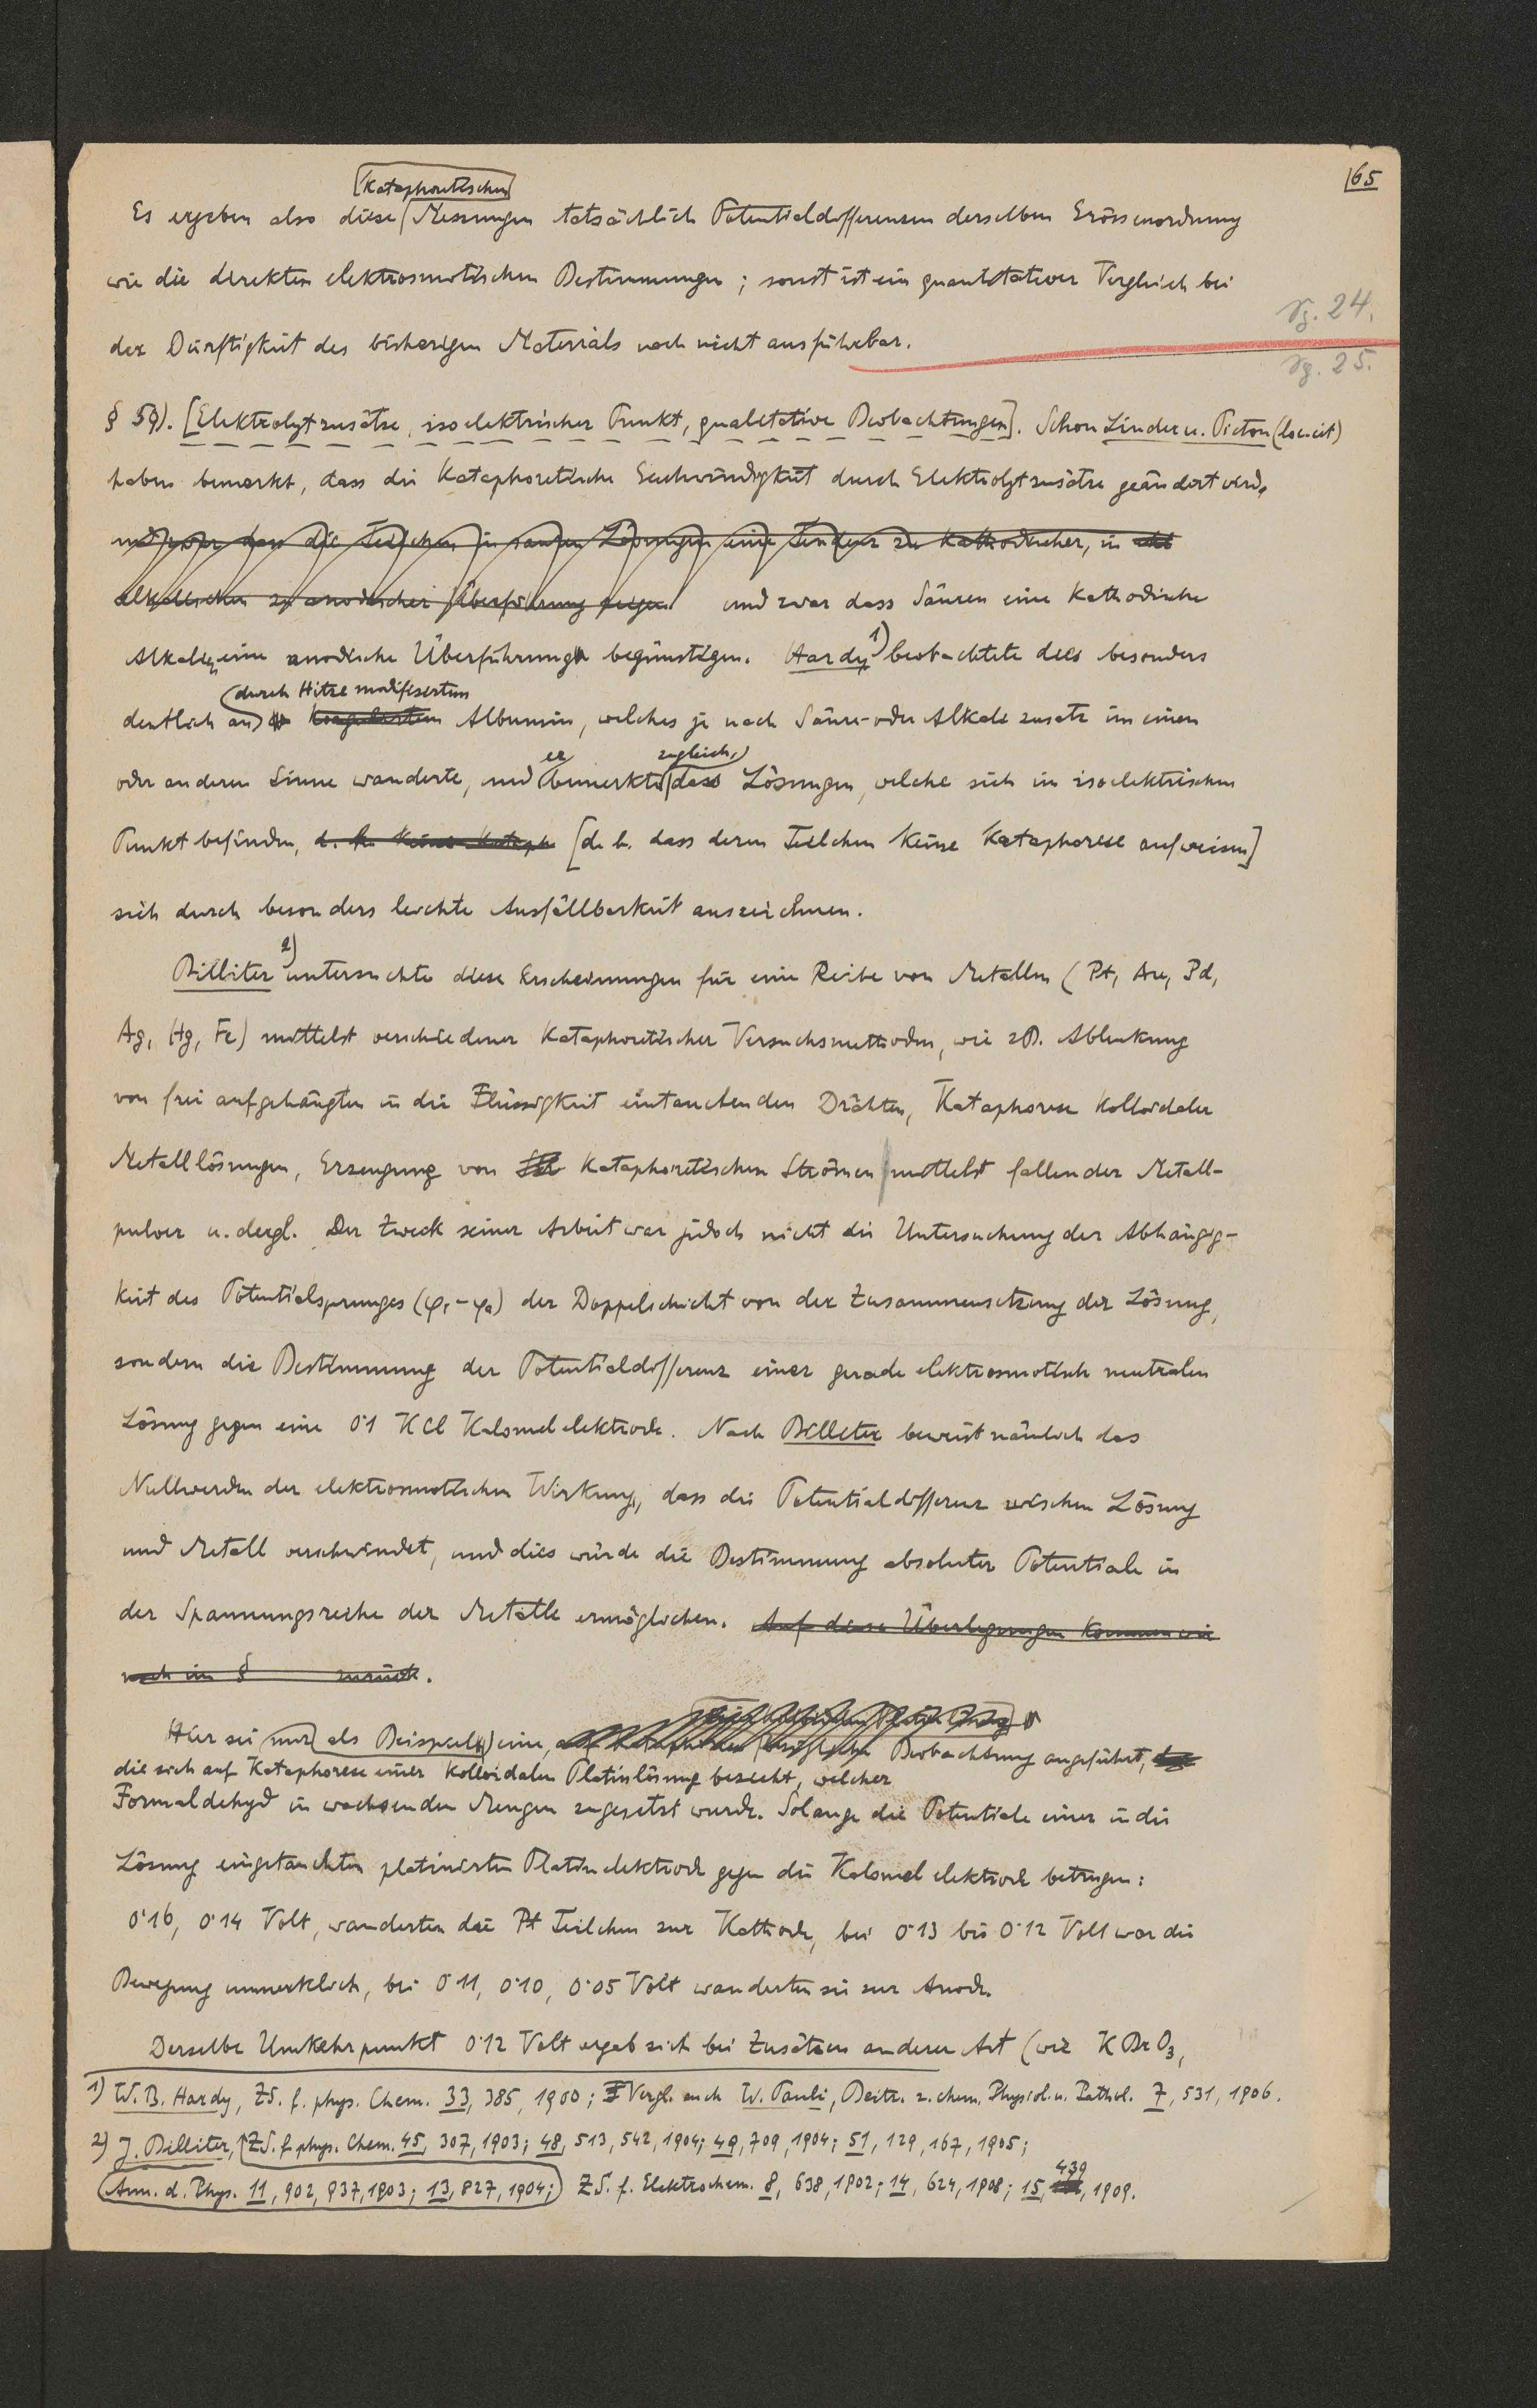 65
kataphoretischen
Es ergeben also diese Messungen tatsächlich Potentialdifferenzen derselben Grössenordnung
wie die direkten elektrosmotischen Bestimmungen; sonst ist ein quantitativer Vergleich bei
der Dürftigkeit des bisherigen Materials noch nicht ausführbar.
Sg. 24.
Sg. 25.
§ 59). [Elektrolytzusätze, isoelektrischer Punkt, qualitative Beobachtungen]. Schon Linder u. Picton (loc. cit)
haben bemerkt, dass die kataphoretische Geschwindigkeit durch Elektrolytzusätze geändert wird,
und zwar dass die Teilchen in sauren Lösungen eine Tendenz zu kathodischer, in
alkalischen zu anodischer Überführung zeigen und zwar dass Säuren eine kathodische
Alkalien eine anodische Überführung begünstigen. Hardy 1) beobachtete dies besonders
durch Hitze modifiziertem
deutlich an koaguliertem Albumin, welches je nach Säure- oder Alkali zusatz im einen
er zugleich,
oder anderen Sinne wanderte, und bemerkte dass Lösungen, welche sich im isoelektrischen
Punkt befinden, d. h. keine Kataph [d. h. dass deren Teilchen keine Kataphorese aufweisen]
sich durch besonders leichte Ausfällbarkeit auszeichnen.
Billiter 2) untersuchte diese Erscheinungen für eine Reihe von Metallen (Pt, Au, Pd,
Ag, Hg, Fe) mittelst verschiedener kataphoretischer Versuchsmethoden, wie zB. Ablenkung
von frei aufgehängten in die Flüssigkeit eintauchenden Drähten, Kataphorese kolloidaler
Metalllösungen, Erzeugung von kataphoretischen Strömen mittelst fallender Metall-
pulver u. dergl. Der Zweck seiner Arbeit war jedoch nicht die Untersuchung der Abhängig-
keit des Potentialsprunges (φi-φa) der Doppelschicht von der Zusammensetzung der Lösung,
sondern die Bestimmung der Potentialdifferenz einer gerade elektrosmotisch neutralen
Lösung gegen eine 0·1 KCl Kalomelelektrode. Nach Billiter beweist nämlich das
Nullwerden der elektrosmotischen Wirkung, dass die Potentialdifferenz zwischen Lösung
und Metall verschwindet, und dies würde die Bestimmung absoluter Potentiale in
der Spannungsreihe der Metalle ermöglichen. Auf diese Überlegungen kommen wir
noch im § zurück.
Hier sei nur als Beispiel eine, bezügliche Beobachtung angeführt,
die sich auf Kataphorese einer kolloidalen Platinlösung bezieht, welcher
Formaldehyd in wachsenden Mengen zugesetzt wurde. Solange die Potentiale einer in die
Lösung eingetauchten platinierten Platinelektrode gegen die Kalomelelektrode betrugen:
0·16, 0·14 Volt, wanderten die Pt Teilchen zur Kathode, bei 0·13 bis 0·12 Volt war die
Bewegung unmerklich, bei 0·11, 0·10, 0·05 Volt wanderten sie zur Anode.
Derselbe Umkehrpunkt 0·12 Volt ergab sich bei Zusätzen anderer Art (wie KBrO3,
1) W. B. Hardy, ZS. f. phys. Chem. 33, 385, 1900; Vergl. auch W. Pauli, Beitr. z. chem. Physiol. u. Pathol. 7, 531, 1906.
2) J. Billiter, ZS. f. phys. Chem. 45, 307, 1903; 48, 513, 542, 1904; 49, 709, 1904; 51, 129, 167, 1905;
439
Ann. d. Phys. 11, 902, 937, 1903; 13, 827, 1904; ZS. f. Elektrochem. 8, 638, 1902; 14, 624, 1908; 15, 1909.